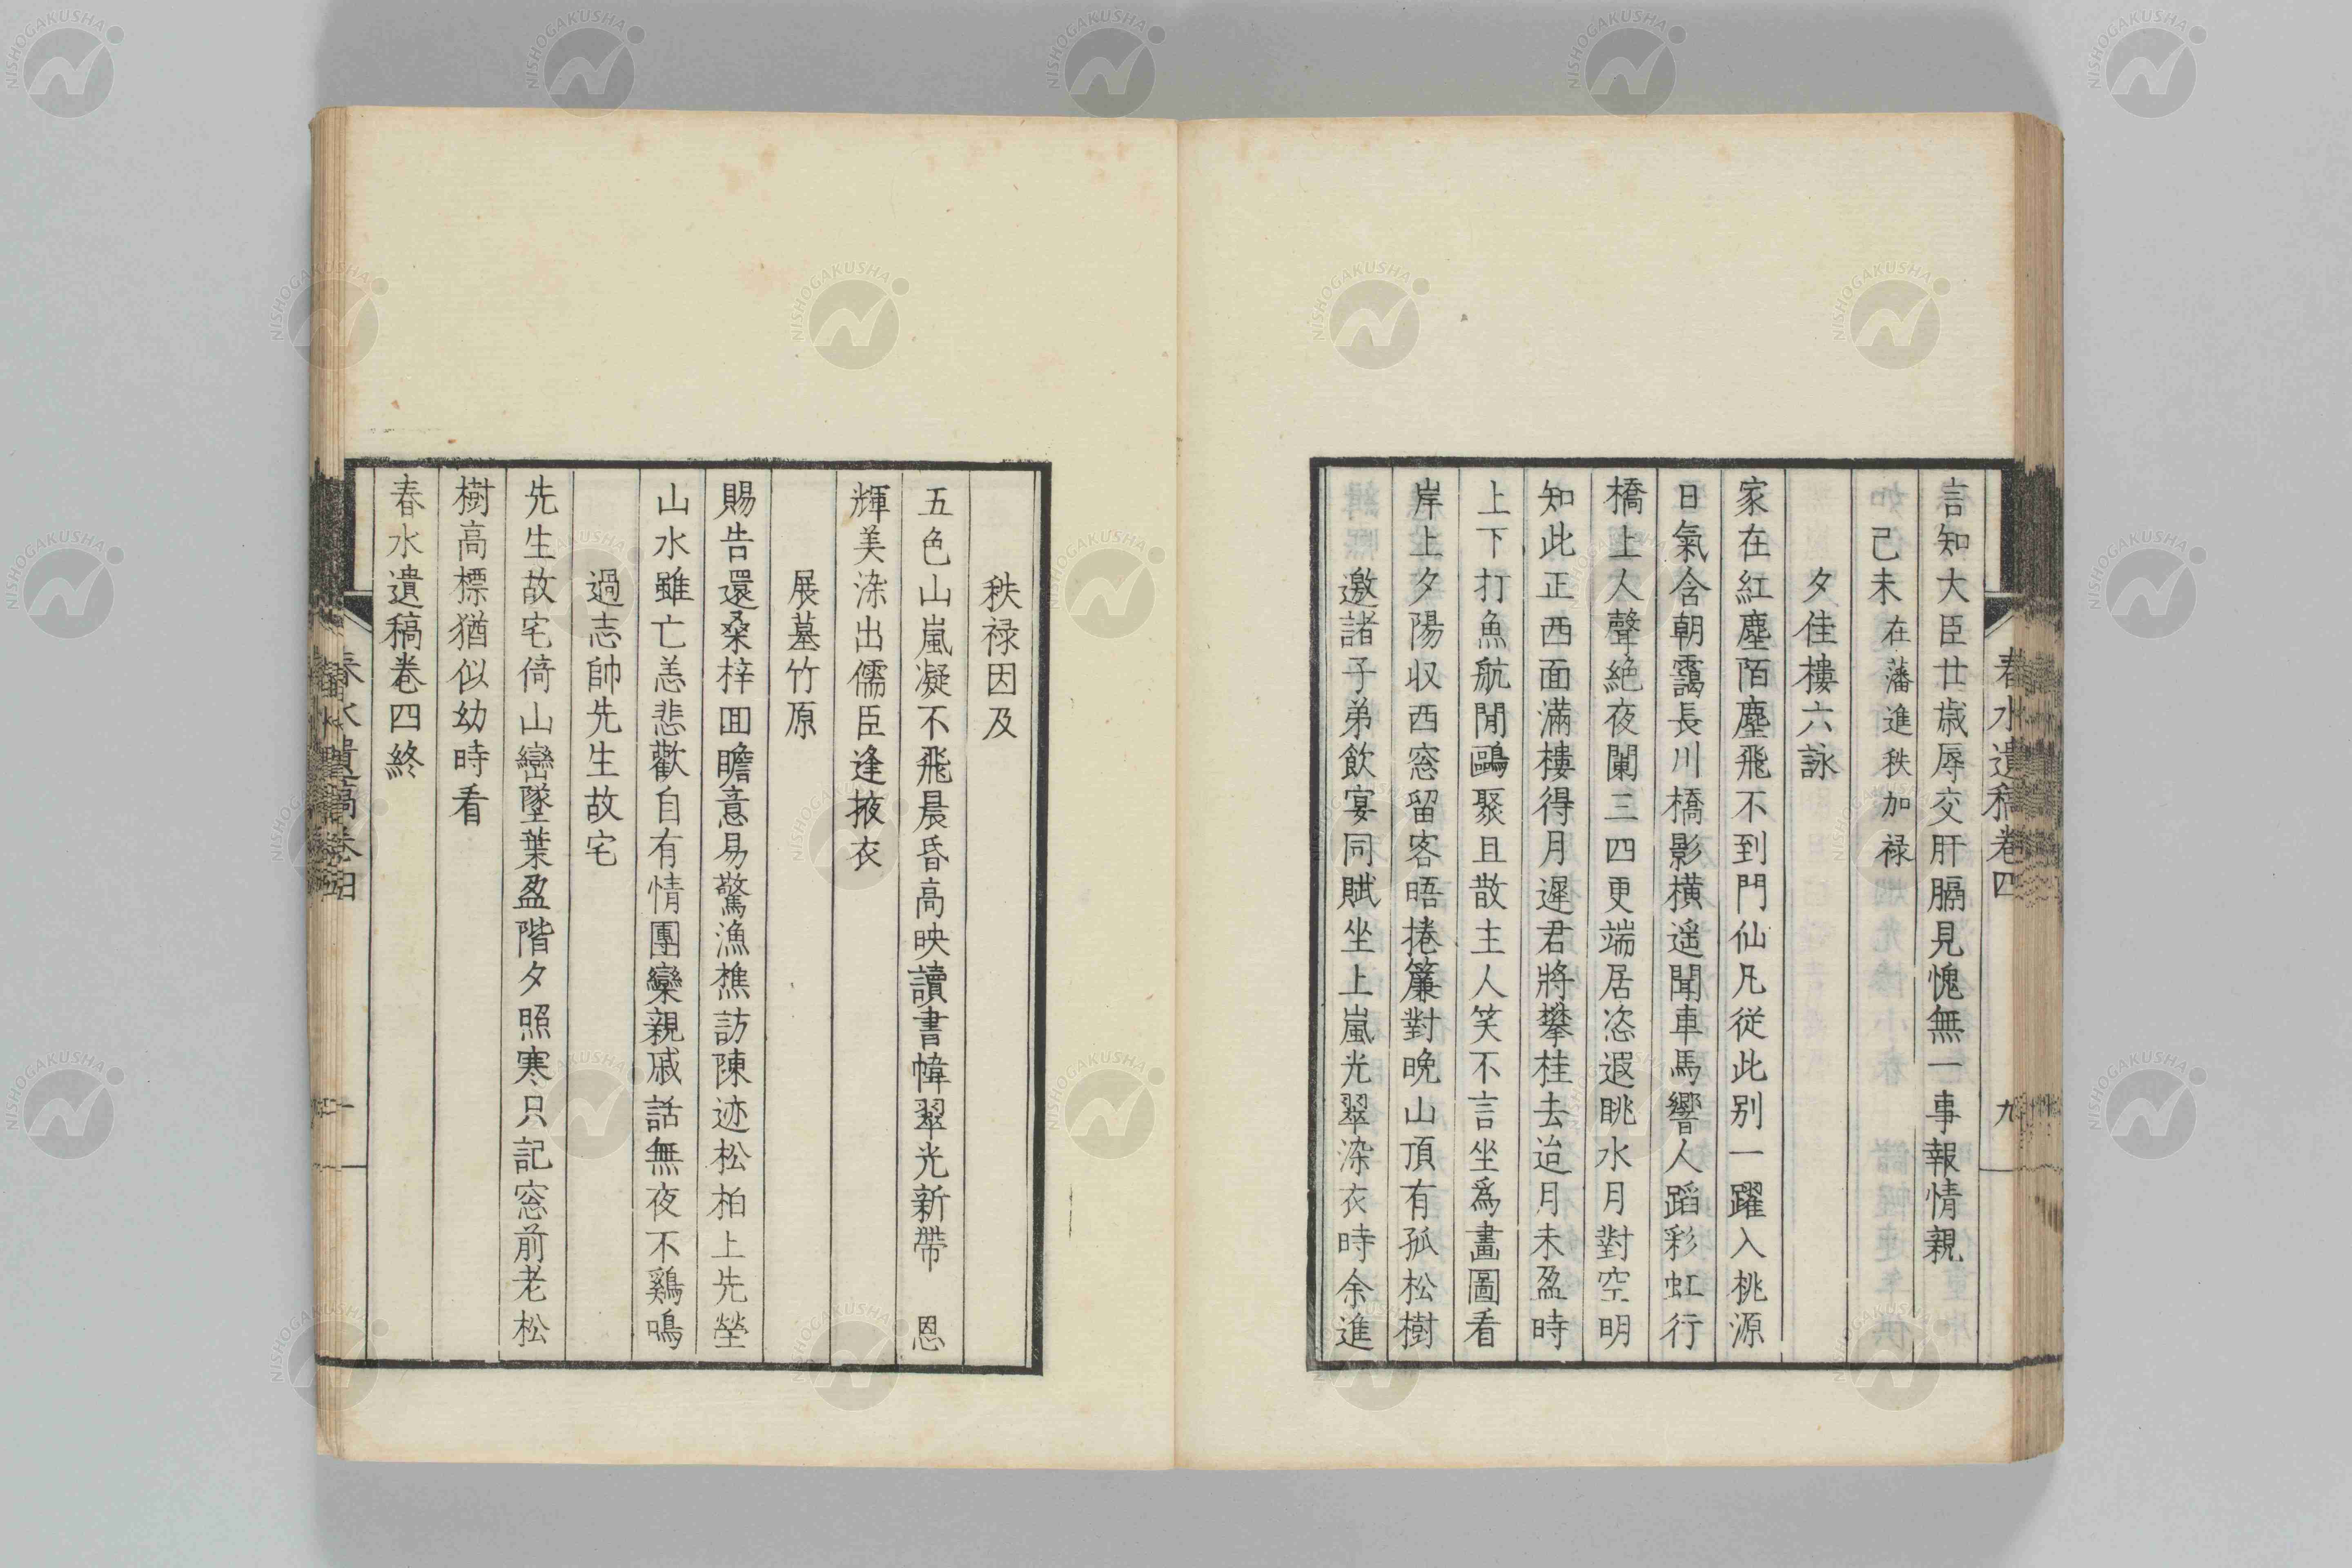 春水遺稿卷四
九
言知大臣廿歳辱交肝膈見愧無一事報情親
己未在藩進秩加禄
夕佳樓六詠
家在紅塵陌塵飛不到門仙凡從此別一躍入桃源
日氣含朝靄長川橋影橫遥聞車馬響人蹈彩虹行
橋上人聲絶夜闌三四更端居恣遐眺水月對空明
知此正西面滿樓得月遲君將攀桂去迨月未盈時
上下打魚航閒鷗聚且散主人笑不言坐爲畫圖看
岸上夕陽収西窓留客晤捲簾對晩山頂有孤松樹
邀諸子弟飲宴同賦坐上嵐光翠染衣時余進
秩禄因及
五色山嵐凝不飛晨昏高映讀書幃翠光新帶 恩
輝美染出儒臣逢掖衣
展墓竹原
賜告還桑梓回瞻意易驚漁樵訪陳迹松柏上先塋
山水雖亡恙悲歡自有情團欒親戚話無夜不鷄鳴
過志帥先生故宅
先生故宅倚山巒墜葉盈階夕照寒只記窓前老松
樹高標猶似幼時看
春水遺稿卷四終
春水遺稿卷四
NISHOGAKUSHA